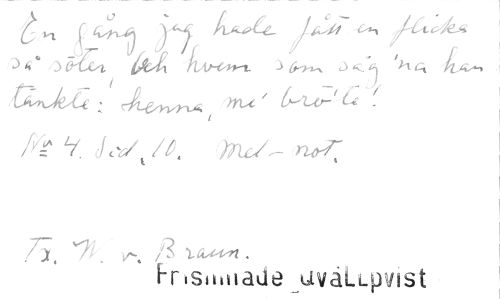 En gång jag hade fått en flicka
så söter, Och hvem som såg 'na han
tänkte: henna, me' brö'te'!
No 4. Sid. 10. Mel-not.
Tx. W. v. Braun.